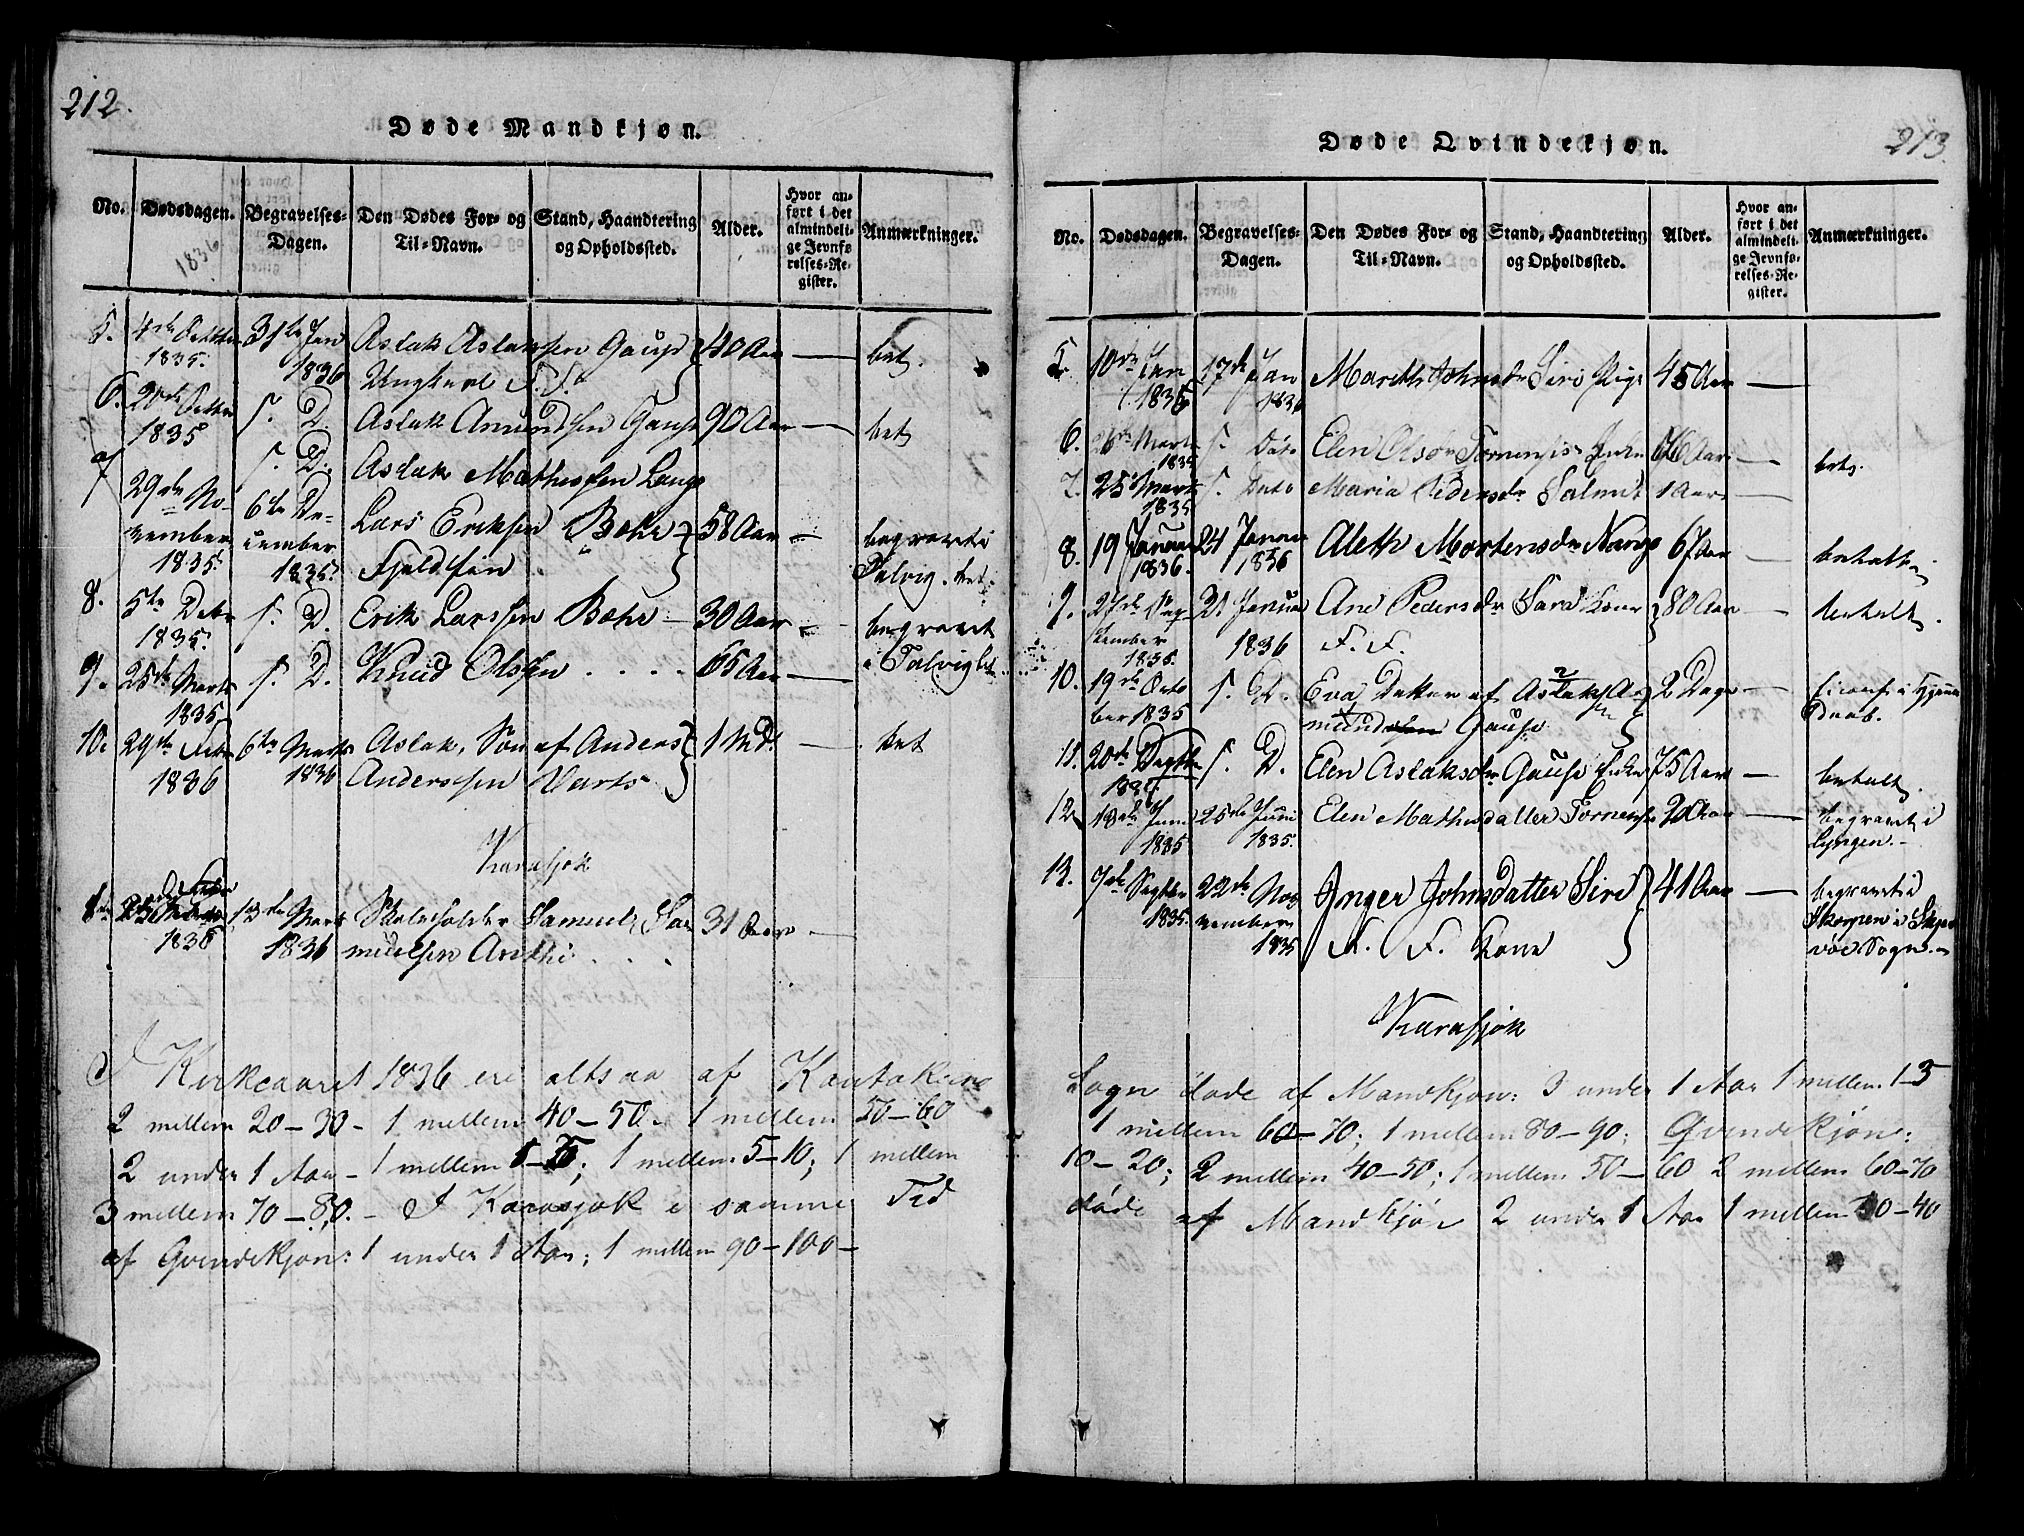 212.
Døde Mandkjøn.
No. Dødsdagen. Begravelses-Dagen. Den Dødes For- og Til-Navn. Stand, Haandtering og Opholdssted. Alder. Hvor anført i det almindelige Jevnførelses-Register. Anmærkninger.
1836
5. 4de Octbr 31te Jan Aslak Aslaksen Gaup 40 Aar — bet.
1835. 1836 Ungkarl F. F.
6. 20de Octbr s. D. Aslak Amundsen Gaup 90 Aar — bet
1835
7 s. D. Aslak Mathissen Lango
29de No- 6te De- Lars Eriksen Bæhr 58 Aar — begravet i
vember cember Fjeldfin Talvig. bet.
1835. 1835.
8. 5te Debr s. D. Erik Larssen Bæhr — 30 Aar — begravet
1835. i Talvig bet
9. 25de Marts s. D. Knud Olssen . . . . 65 Aar —
1835
10. 29de Febr 6te Marts Aslak, Søn af Anders 1 Md. — bet
1836 1836 Anderssen Varts
Karasjok
13de Marts Skoleholder Samuel Sa 31 Aar —
1836 1836 muelsen Anthi . . .
I Kirkeaaret 1836 ere altsaa af Kautokeino
2 mellem 20–30 – 1 mellem 40–50. 1 mellem 50–60
2 under 1 Aar – 1 mellem 1–5; 1 mellem 5–10; 1 mellem
3 mellem 70–80. – I Karasjok i samme Tid
af Qvindekjøn: 1 under 1 Aar; 1 mellem 90–100 –
213.
Døde Qvindekjøn.
No. Dødsdagen. Begravelses-Dagen. Den Dødes For- og Til-Navn. Stand, Haandtering og Opholdssted. Alder. Hvor anført i det almindelige Jevnførelses-Register. Anmærkninger.
5 10de Jan 17de Jan Mareth Johnsdr Siri Pige 45 Aar —
1836 1836
6. 26de Marts s. Dato Elen Olsdr Tornensis Enke 66 Aar — bet.
1835
7. 25 Marts s. Dato Maria Pedersdr Salmit 1 Aar —
1835
8. 19 Januar 24 Januar Aleth Mortensdr Nango 67 Aar — betalt
1836. 1836
9. 27de Sep 21 Januar Ane Pedersdr Sara Kone 80 Aar — betalt.
tember 1836 F. F.
1835.
10. 19de Octo s. D. Eva Datter af Aslak A 2 Dage —
ber 1835 mundsen Gaup Daab.
11. 20de Septbr s. D. Elen Aslaksdr Gaup Enke 75 Aar — betalt.
12 18de Juni 25de Juni Elen Mathisdatter Tornensis Aar — begravet i
1835 1835. Lyngen. –
13. 7de Septbr 22de No Inger Johnsdatter Siri 41 Aar — begravet i
1835. vember F. F. Kone Skorpen i Skjer
1835 vøe Sogn. –
Karasjok
Sogn døde af Mandkjøn: 3 under 1 Aar 1 mellem 1–3
1 mellem 60–70; 1 mellem 80–90; Qvindekjøn:
10–20; 2 mellem 40–50; 1 mellem 50–60 2 mellem 60–70
døde af Mandkjøn 2 under 1 Aar 1 mellem 30–40